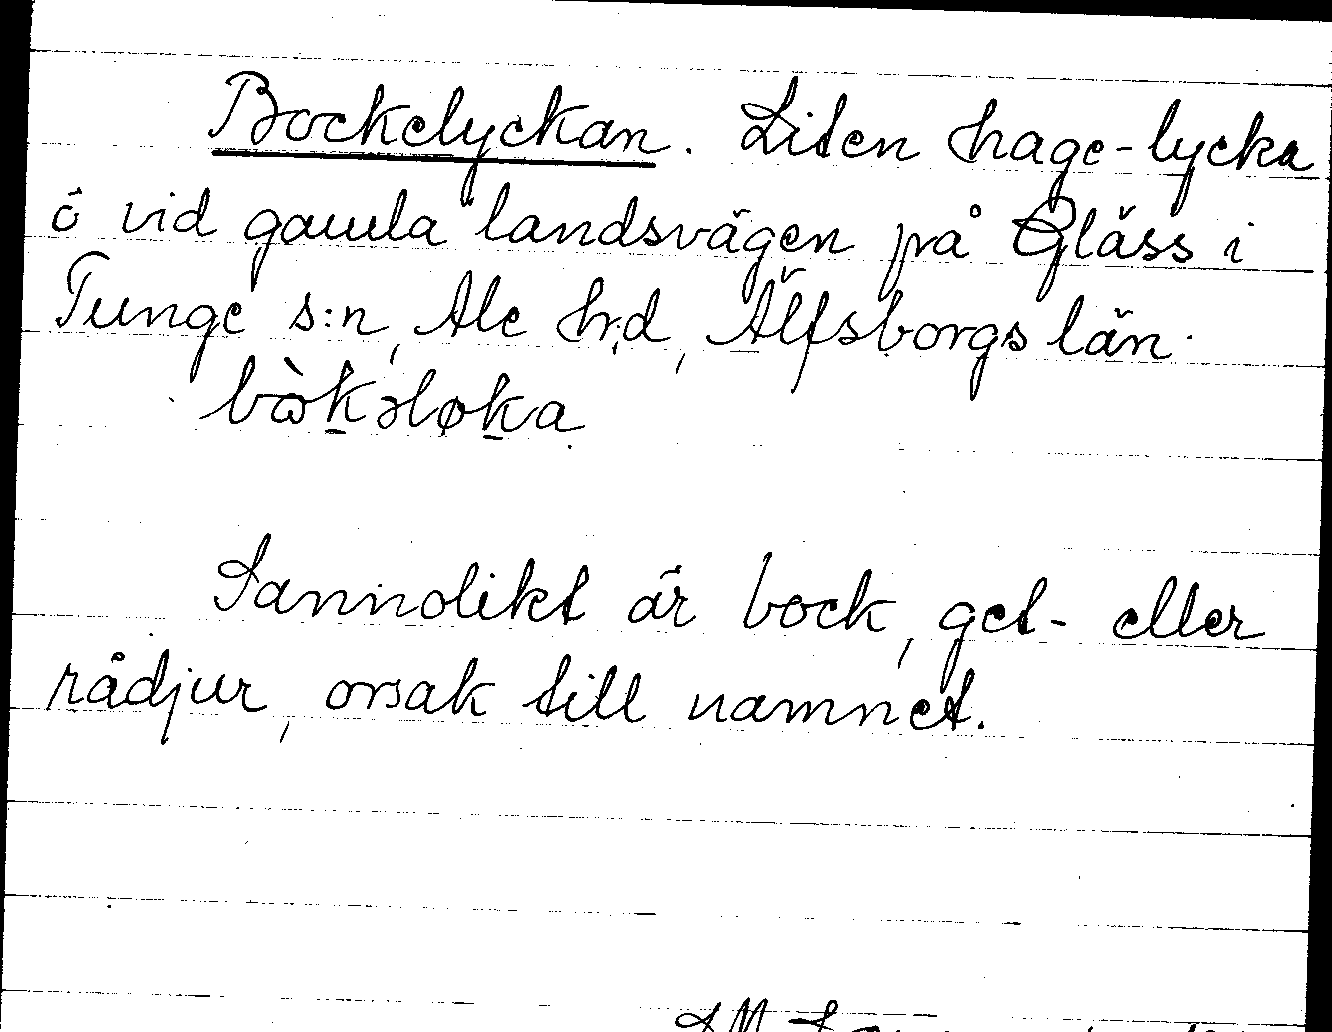 Bockelyckan. Liten hage-lycka
ö vid gamla landsvägen på Gläss i
Tunge s:n, Ale h:d, Älfsborgs län.
bɷ̀k̠əløk̠a
Sannolikt är bock, get- eller
rådjur, orsak till namnet.